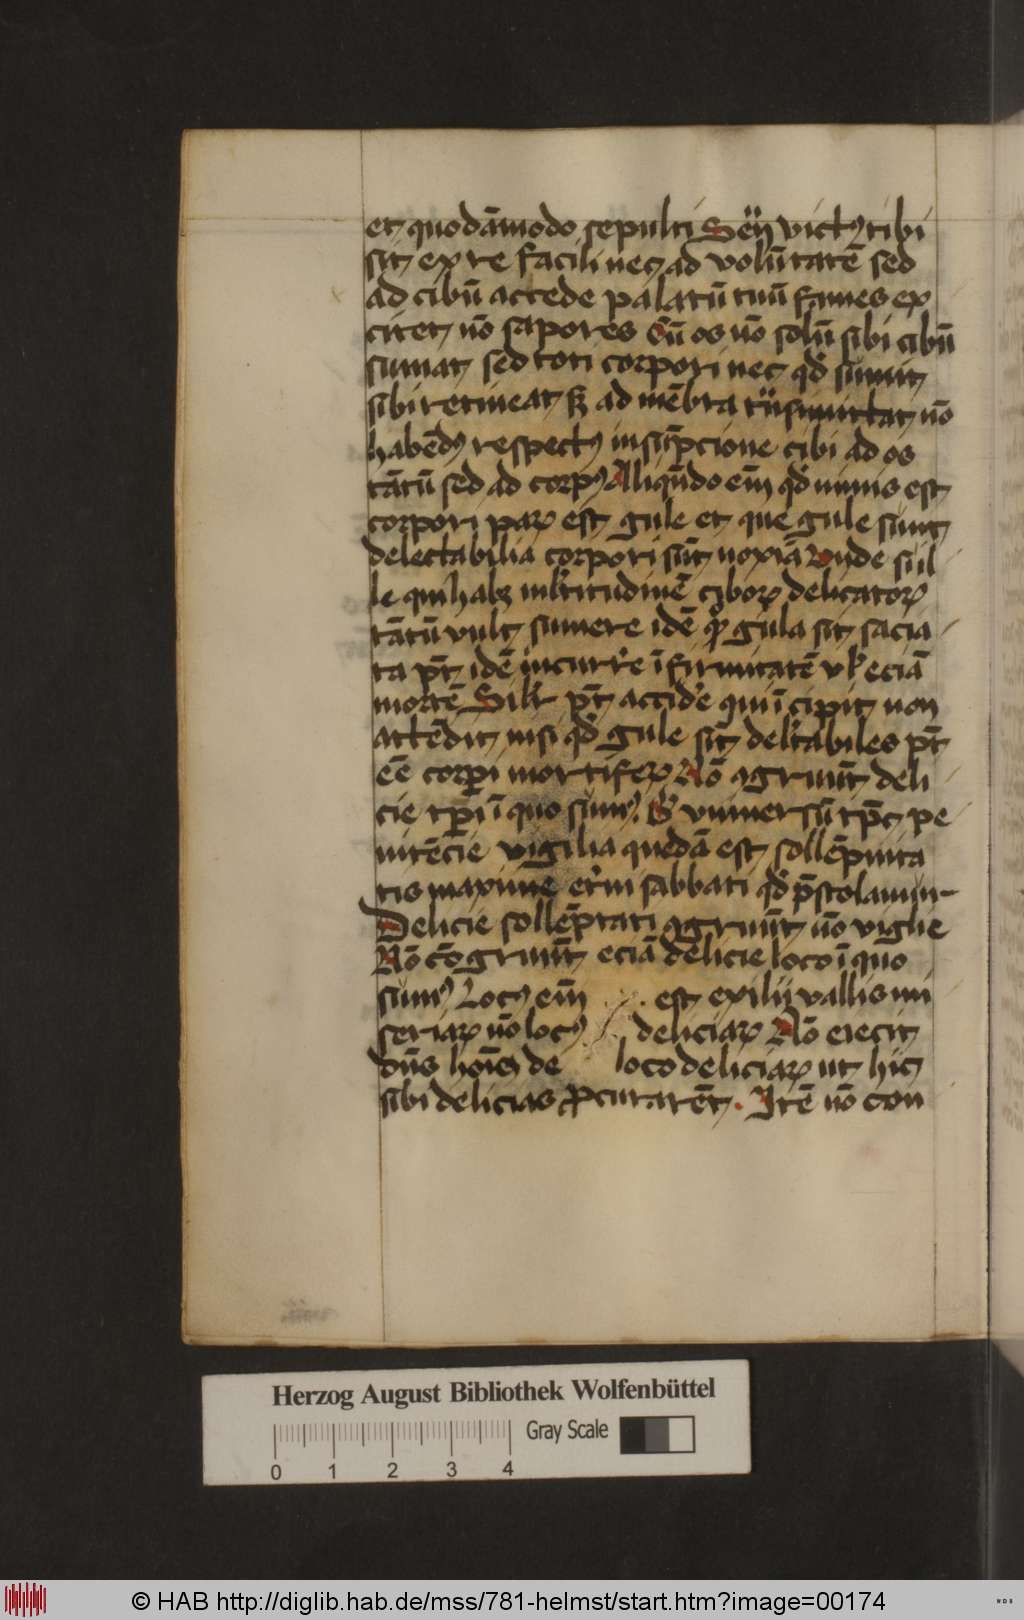 et quodāmodo sepulti Sen̄ victꝰ tibi
sit ex re facili nec ad volūtatē sed
ad cibū accede palatū tuū fames ex
citet nō sapores Cū os nō solū sibi cibū
sumat sed toti corpori nec qd̄ sumit
sibi retineat sꝫ ad mēbra nō
habēdꝰ respectꝰ in sūpcione cibi ad os
tātū sed ad corpꝰ Aliqn̄do em̄ qd̄ nimis est
corpori paꝝ est gule et que gule sunt
delectabilia corpori sūt noxia Vnde
le qui habꝫ mltitudinē ciboꝝ delicatoꝝ
tātū vult sumere idē gula sit sacia
ta pt̄ idē incurrͤe īfirmitatē vl eciā
mortē Silr pt̄ accidͤe qui īcipit non
attēdit nisi qd̄ gule sīt delc̄abiles pt̄
eē corpi mortifeꝝ Nō ꝯgruūt deli
cie tpī ī quo sumꝰ vniuersū tpꝰ pe
nitēcie vigilia quedā est sollēpnita
tis maxime et̄ni sabbati qd̄ p̄stolamur
Delicie sollēptati ꝯgruūt nō viglie
Nō cōgruūt eciā delicie loco ī quo
sumꝰ Locꝰ em̄ est exilij vallis mi
seriaꝝ nō locꝰ deliciaꝝ Nō eiecit
dn̄s hoīeꝫ de loco deliciaꝝ ut hic
sibi delicias ꝓcurarēt. Itē nō con
Herzog August Bibliothek Wolfenbüttel
Gray Scale
0 1 2 3 4
© HAB http://diglib.hab.de/mss/781-helmst/start.htm?image=00174